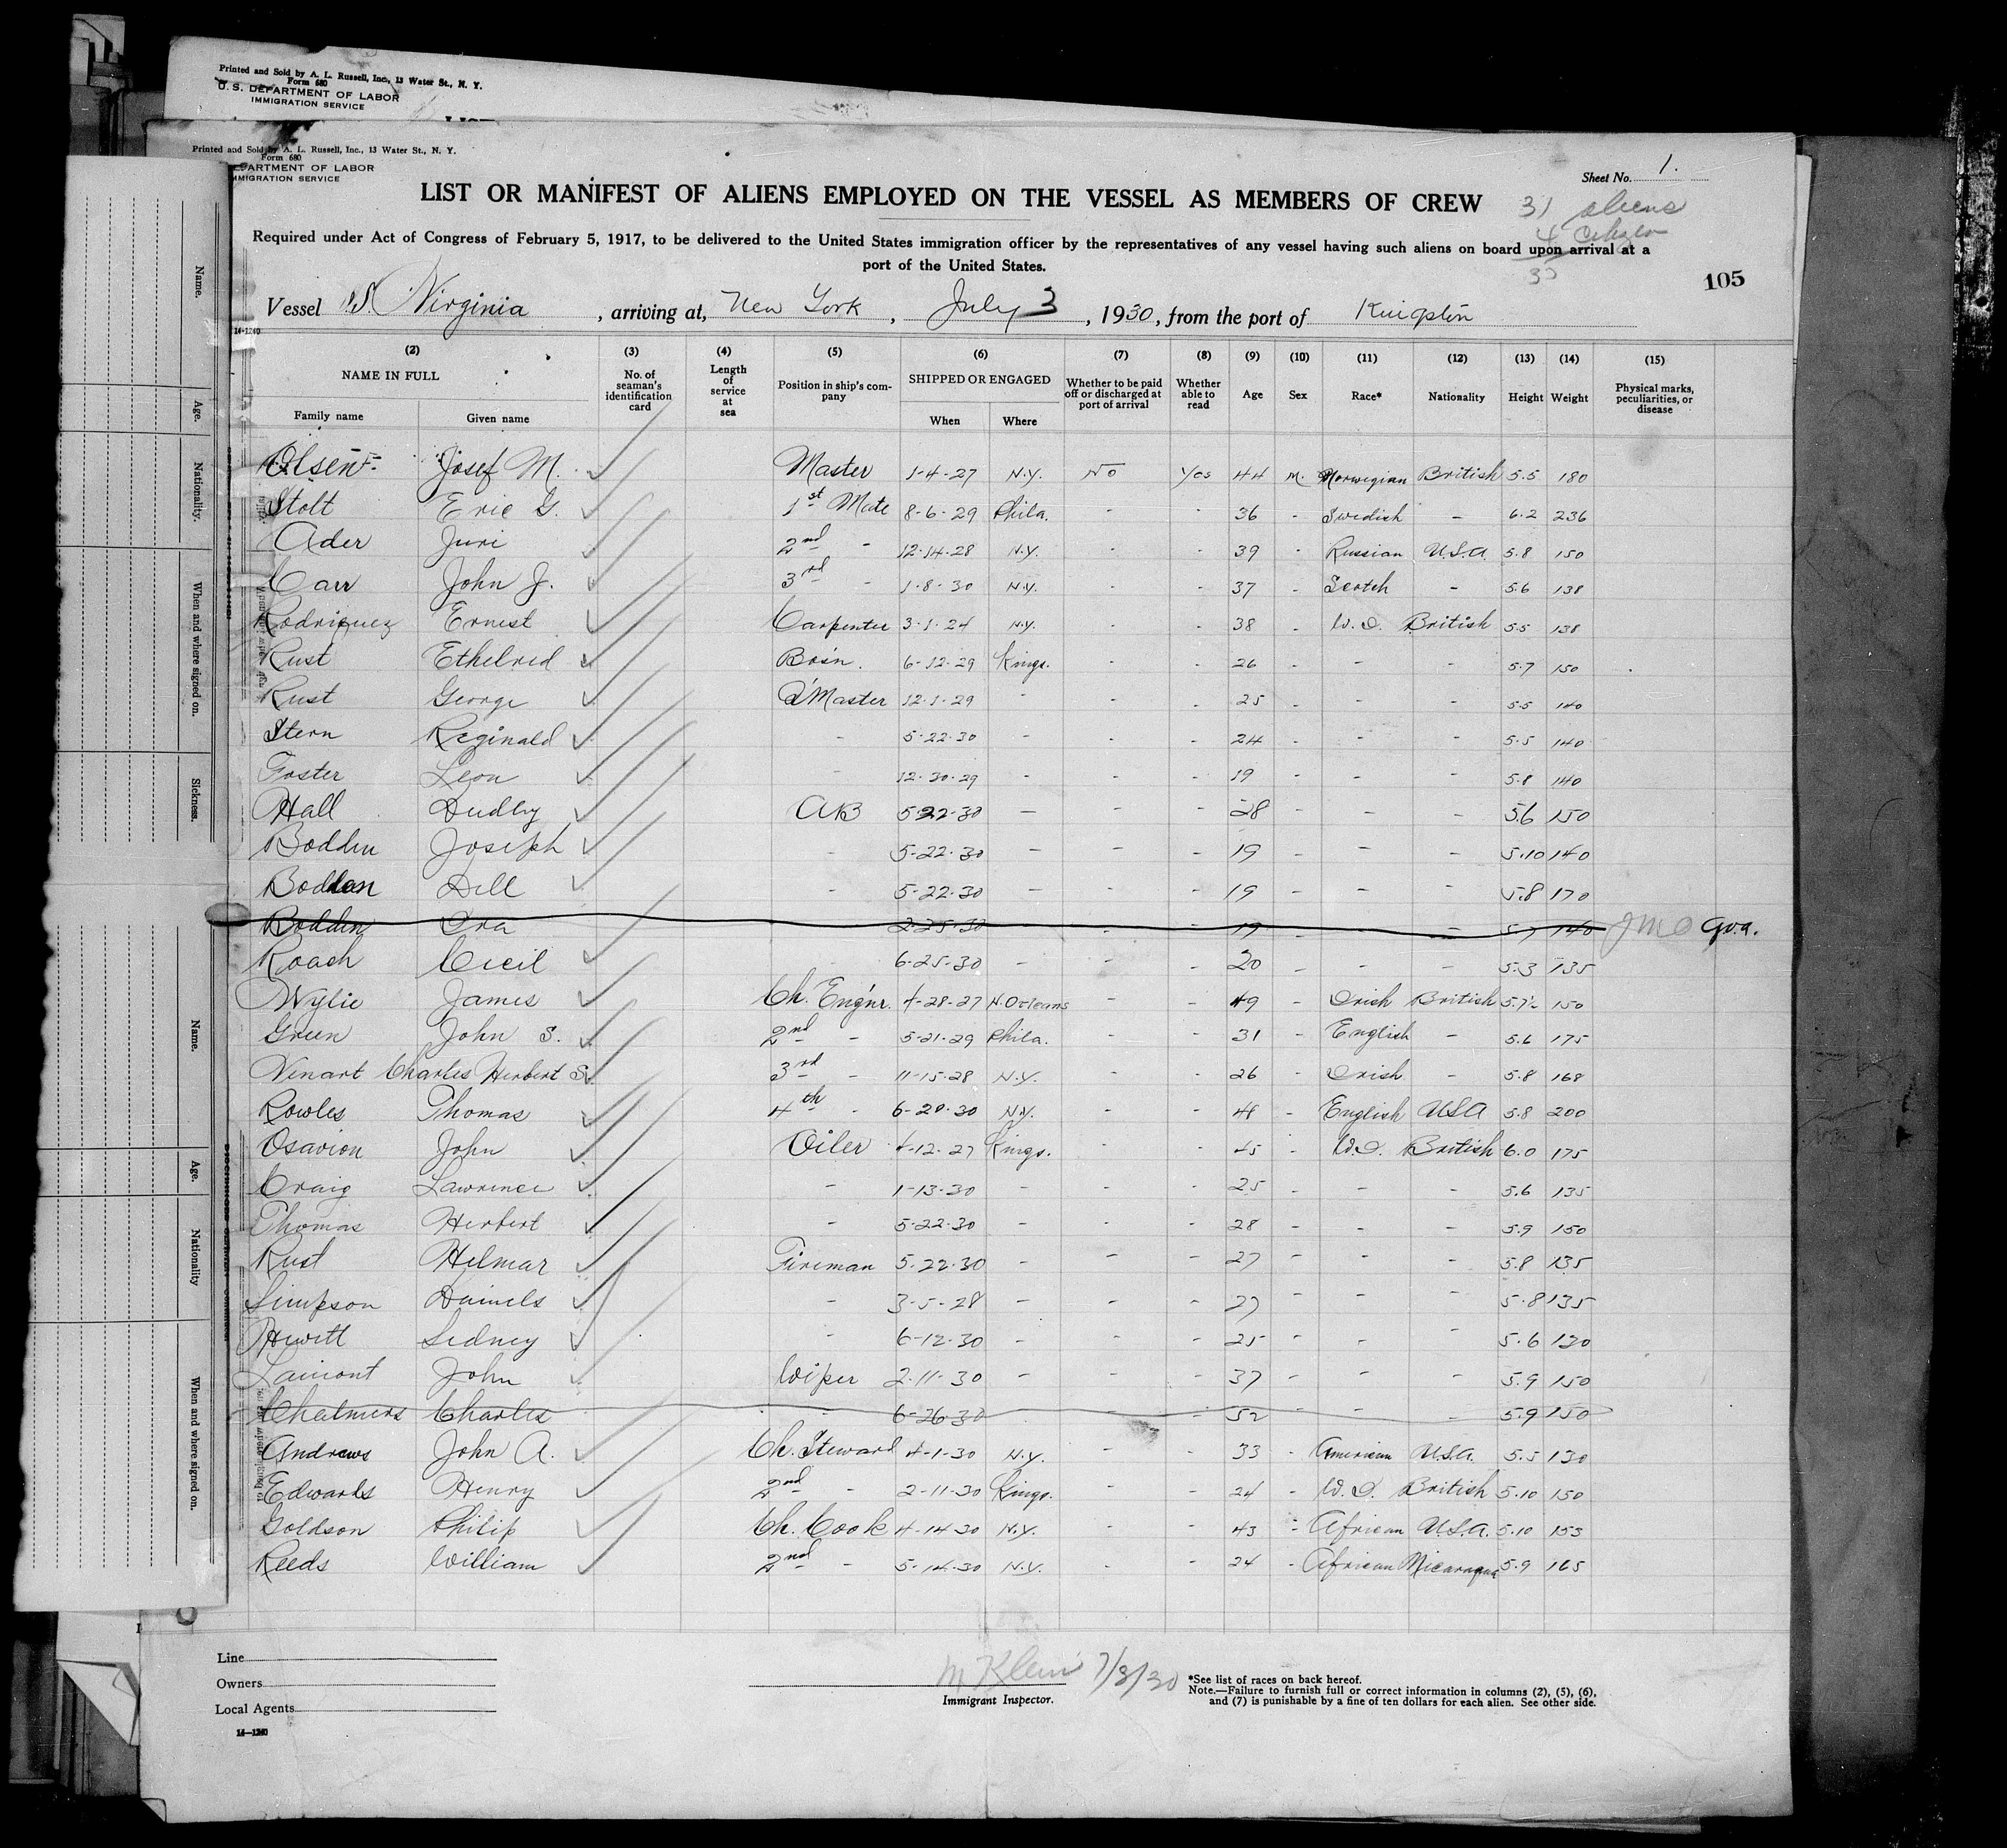 Printed and Sold by A. L. Russell, Inc., 13 Water St., N. Y.
Form 680
U. S. DEPARTMENT OF LABOR
IMMIGRATION SERVICE
Printed and Sold by A. L. Russell, Inc., 13 Water St., N. Y.
Form 680
DEPARTMENT OF LABOR
IMMIGRATION SERVICE
Sheet No. 1.
LIST OR MANIFEST OF ALIENS EMPLOYED ON THE VESSEL AS MEMBERS OF CREW
31 aliens
4 citizen
35
Required under Act of Congress of February 5, 1917, to be delivered to the United States immigration officer by the representatives of any vessel having such aliens on board upon arrival at a
port of the United States.
105
Vessel SS. Virginia, arriving at, New York, July 3, 1930, from the port of Kingston
14-1240
(2) (3) (4) (5) (6) (7) (8) (9) (10) (11) (12) (13) (14) (15)
NAME IN FULL No. of seaman's identification card Length of service at sea Position in ship's company SHIPPED OR ENGAGED Whether to be paid off or discharged at port of arrival Whether able to read Age Sex Race* Nationality Height Weight Physical marks, peculiarities, or disease
Family name Given name When Where
Olsen Josef M. Master 1-4-27 N.Y. No Yes 44 M. Norwegian British 5.5 180
Stolt Eric G. 1st Mate 8-6-29 Phila. - - 36 - Swedish - 6.2 236
Ader Juri 2nd - 12-14-28 N.Y. - - 39 - Russian U.S.A. 5.8 150
Carr John J. 3rd - 1-8-30 N.Y. - - 37 - Scotch - 5.6 138
Rodriguez Ernest Carpenter 3-1-24 N.Y. - - 38 - W.I. British 5.5 138
Rust Ethelred Bos'n. 6-12-29 Kings. - - 26 - - - 5.7 150
Rust George Q'Master 12-1-29 - - - 25 - - - 5.5 140
Stern Reginald - 5-22-30 - - - 24 - - - 5.5 140
Foster Leon - 12-30-29 - - - 19 - - - 5.8 140
Hall Dudley AB 5-22-30 - - - 28 - - - 5.6 150
Bodden Joseph - 5-22-30 - - - 19 - - - 5.10 140
Bodden Dill - 5-22-30 - - - 19 - - - 5.8 170
Bodden Ora 2-25-30 - - 19 - - - 5.7 140 JMO
Roach Cecil - 6-25-30 - - - 20 - - - 5.3 135
Wylie James Ch. Eng'nr. 4-28-27 N.Orleans - - 49 - Irish British 5.7½ 150
Green John S. 2nd - 5-21-29 Phila. - - 31 - English - 5.6 175
Vinart Charles Herbert S. 3rd - 11-15-28 N.Y. - - 26 - Irish - 5.8 168
Rowles Thomas 4th - 6-20-30 N.Y. - - 48 - English USA 5.8 200
Osavion John Oiler 4-12-27 Kings. - - 45 - W.I. British 6.0 175
Craig Lawrence - 1-13-30 - - - 25 - - - 5.6 135
Thomas Herbert - 5-22-30 - - - 28 - - - 5.9 150
Rust Helmar Fireman 5-22-30 - - - 27 - - - 5.8 135
Simpson Daniels - 3-5-28 - - - 27 - - - 5.8 135
Hewitt Sidney - 6-12-30 - - - 25 - - - 5.6 130
Lamont John Wiper 2-11-30 - - - 37 - - - 5.9 150
Chalmers Charles - 6-26-30 - - - 52 - - - 5.9 150
Andrews John A. Ch. Steward 4-1-30 N.Y. - - 33 - American U.S.A. 5.5 130
Edwards Henry 2nd - 2-11-30 Kings. - - 24 - W.I. British 5.10 150
Goldson Philip Ch. Cook 4-14-30 N.Y. - - 43 - African U.S.A. 5.10 153
Reeds William 2nd - 5-14-30 N.Y. - - 24 - African Nicaragua 5.9 165
Line
Owners
Local Agents
14-1240
M Klein 7/3/30
Immigrant Inspector.
*See list of races on back hereof.
Note.—Failure to furnish full or correct information in columns (2), (5), (6),
and (7) is punishable by a fine of ten dollars for each alien. See other side.
Name.
Age.
Nationality.
When and where signed on.
Sickness.
Name.
Age.
Nationality
When and where signed on.